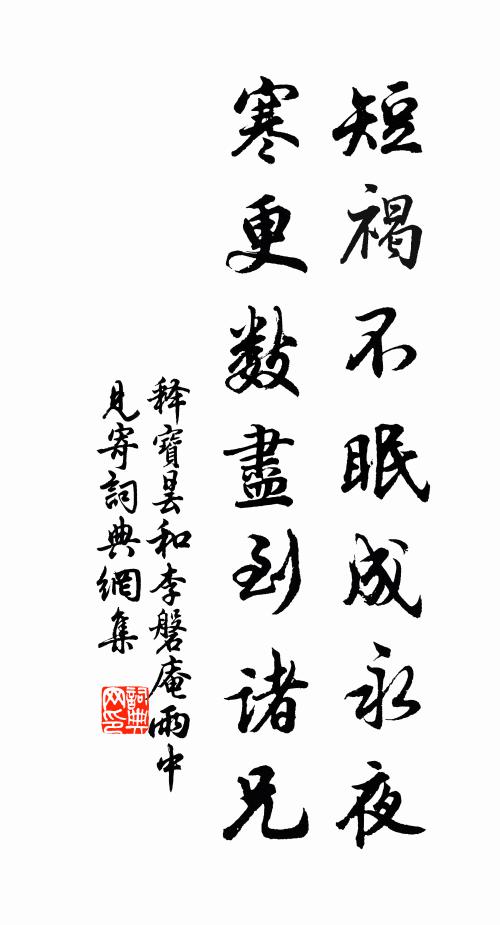 短褐不眠成永夜
寒更数盡到諸兄
释寶曇和李磐庵雨中
見寄詞典網集
詞典
网印